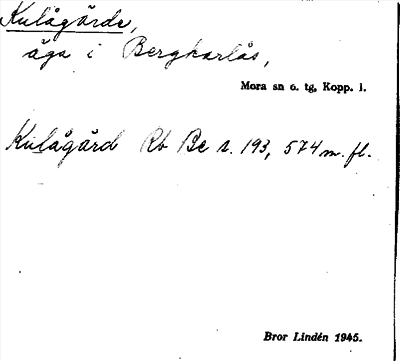 Kulågärde,
äga i Bergkarlås,
Mora sn o. tg, Kopp. l.
Kulågärd Rb Be s. 193, 574 m. fl.
Bror Lindén 1945.